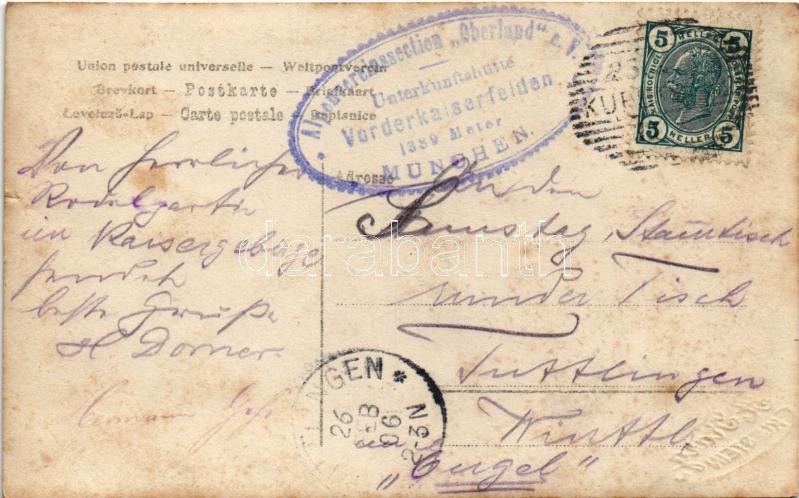 Union postale universelle — Weltpostverein
Brevkort — Postkarte — Briefkaart
Levelező-Lap — Carte postale — Dopisnice
Adresse
Alpenvereinssection „Oberland“ e. V.
Unterkunftshütte
Vorderkaiserfelden
1389 Meter
MÜNCHEN.
5 HELLER 5
5 HELLER 5
KUF
Von herrlicher
Rodelpartie
im Kaisergebirge
sendet
beste Grüße
H Dorner
An den
Samstag Stammtisch
runder Tisch
Tuttlingen
Württbg
„Engel“
LINGEN *
26
FEB
06
2-3N
darabanth